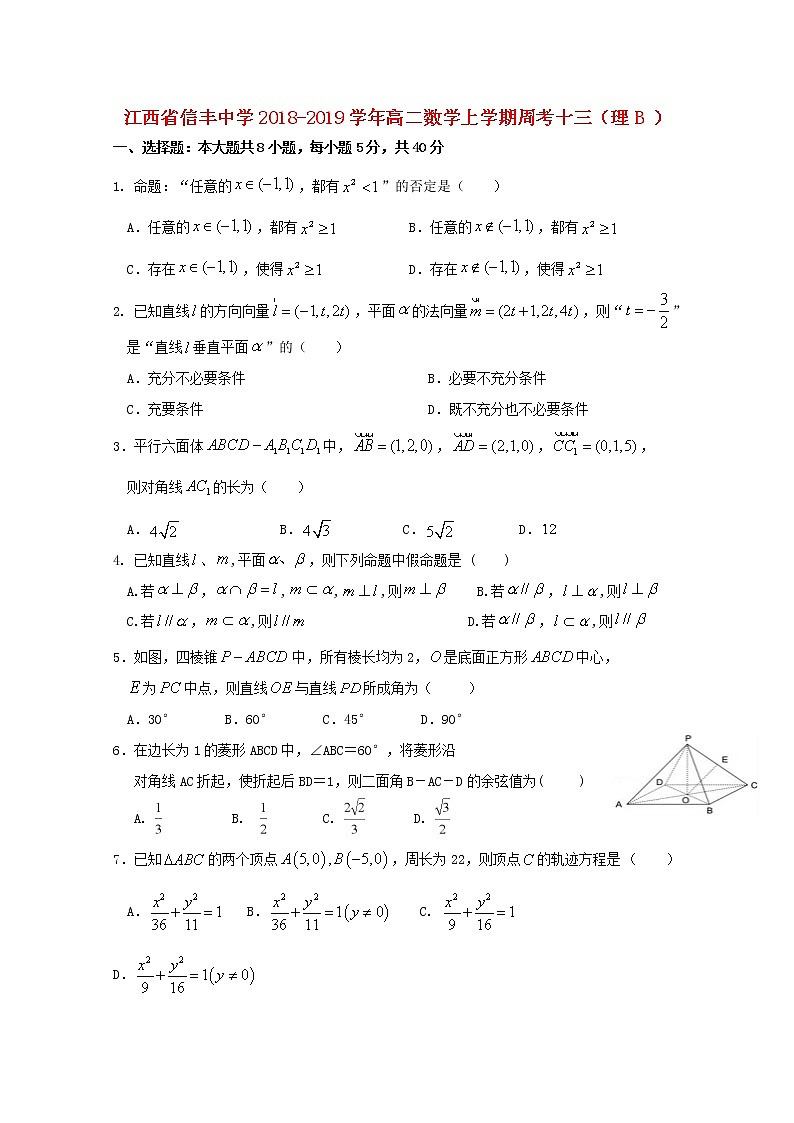 江西省信丰中学2018-2019学年高二数学上学期周考十三（理B ）
一、选择题：本大题共8小题，每小题5分，共40分
1. 命题：“任意的x∈(−1,1)，都有x² <1”的否定是（　　）
A．任意的x∈(−1,1)，都有x²≥1　　B．任意的x∉(−1,1)，都有x²≥1
C．存在x∈(−1,1)，使得x²≥1　　D．存在x∉(−1,1)，使得x²≥1
2. 已知直线l的方向向量l=(−1,t,2t)，平面α的法向量m=(2t+1,2t,4t)，则“t=−3/2”
是“直线l垂直平面α”的（　　）
A．充分不必要条件　　B．必要不充分条件
C．充要条件　　D．既不充分也不必要条件
3．平行六面体ABCD−A₁B₁C₁D₁中，AB=(1,2,0)，AD=(2,1,0)，CC₁=(0,1,5)，
则对角线AC₁的长为（　　）
A．4√2　　B．4√3　　C．5√2　　D．12
4. 已知直线l、m,平面α、β，则下列命题中假命题是（　　）
A.若α⊥β，α∩β=l，m⊂α,m⊥l,则m⊥β　　B.若α//β，l⊥α,则l⊥β
C.若l//α，m⊂α,则l//m　　D.若α//β，l⊂α,则l//β
5．如图，四棱锥P−ABCD中，所有棱长均为2，O是底面正方形ABCD中心，
E为PC中点，则直线OE与直线PD所成角为（　　）
A．30°　　B．60°　　C．45°　　D．90°
6．在边长为1的菱形ABCD中，∠ABC＝60°，将菱形沿
对角线AC折起，使折起后BD＝1，则二面角B－AC－D的余弦值为(　　)
A. 1/3　　B. 1/2　　C. 2√2/3　　D. √3/2
P
E
D
C
O
A
B
7．已知ΔABC的两个顶点A(5,0),B(−5,0)，周长为22，则顶点C的轨迹方程是（　　）
A．x²/36+y²/11=1　　B．x²/36+y²/11=1(y≠0)　　C. x²/9+y²/16=1
D．x²/9+y²/16=1(y≠0)